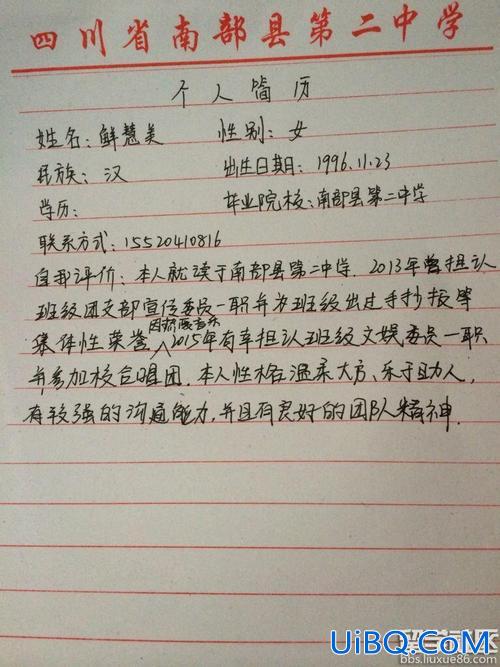 四川省南部县第二中学
个人简历
姓名:鲜慧美 性别:女
民族:汉 出生日期:1996.11.23
学历: 毕业院校:南部县第二中学
联系方式:15520410816
自我评价:本人就读于南部县第二中学.2013年曾担认
班级团支部宣传委员一职并为班级出过手抄报等
因热爱音乐
集体性荣誉 2015年有幸担认班级文娱委员一职
并参加校合唱团.本人性格温柔大方、乐于助人,
有较强的沟通能力,并且有良好的团队精神.
UiBQ.CoM
bbs.liuxue86.com